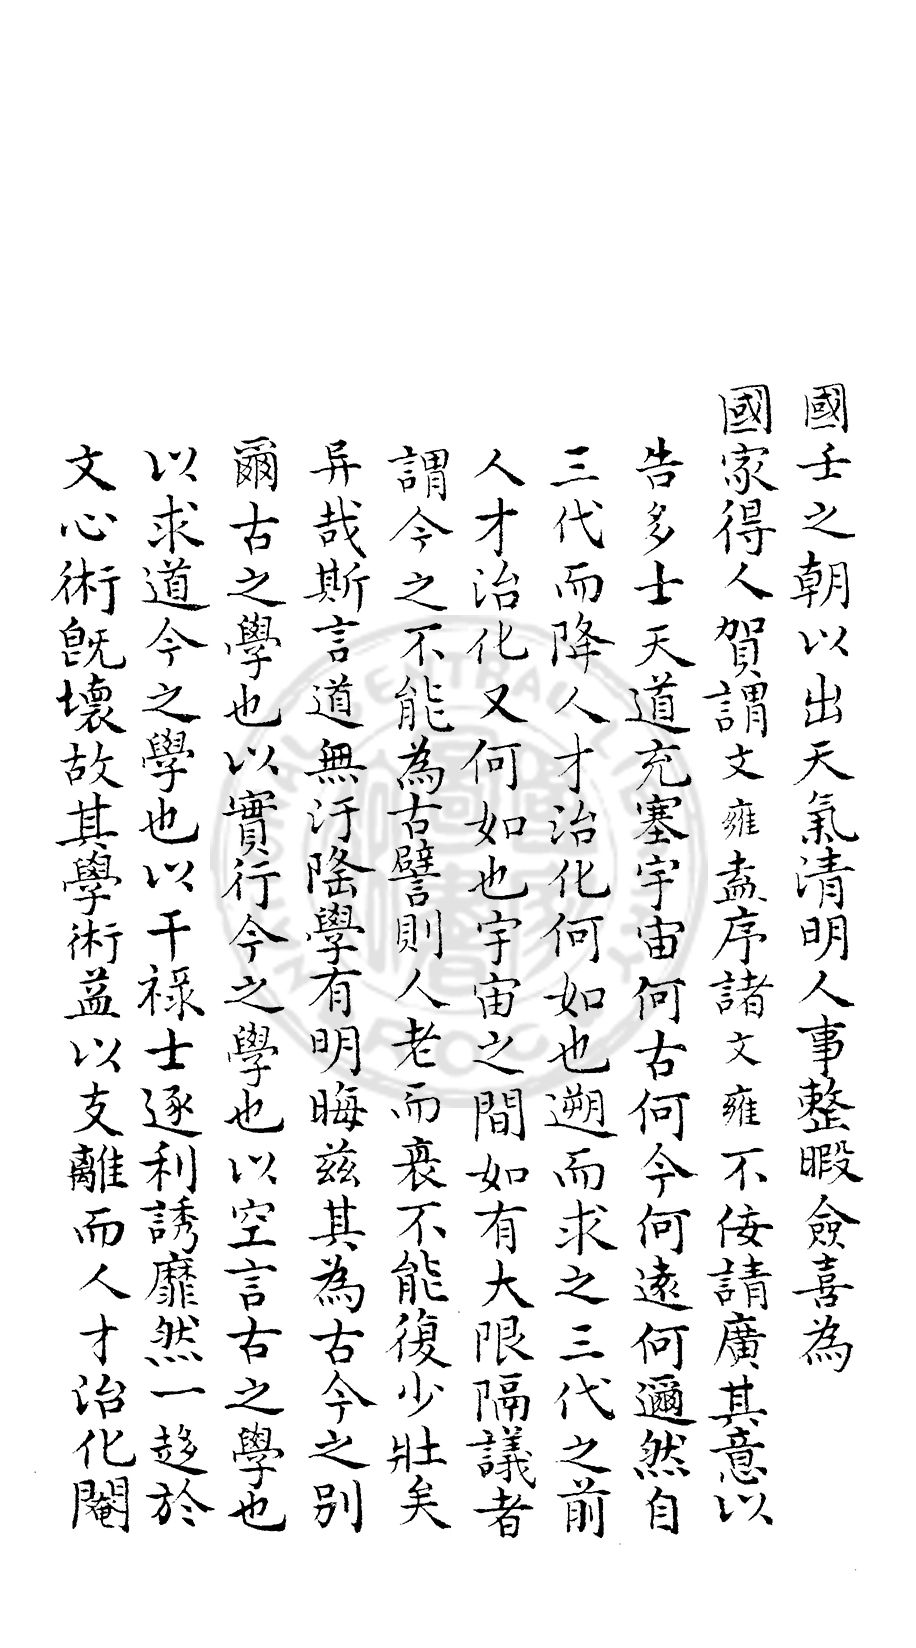 國壬之朝以出天氣清明人事整暇僉喜為
國家得人賀謂文雍盍序諸文雍不佞請廣其意以
告多士天道充塞宇宙何古何今何遠何邇然自
三代而降人才治化何如也遡而求之三代之前
人才治化又何如也宇宙之間如有大限隔議者
謂今之不能為古譬則人老而衰不能復少壯矣
异哉斯言道無汙隆學有明晦茲其為古今之別
爾古之學也以實行今之學也以空言古之學也
以求道今之學也以干祿士逐利誘靡然一趍於
文心術旣壞故其學術益以支離而人才治化闇